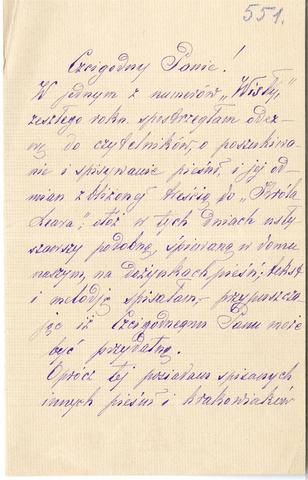 551.
Czcigodny Panie!
W jednym z numerów „Wisły”
zeszłego roku spostrzegłam odez-
wę do czytelników, o poszukiwa-
nie i spisywanie pieśni, i jej od-
mian zbliżonej treścią do „Króla
Leara”, otóż w tych dniach usły-
szawszy podobną, śpiewaną w domu
naszym, na dożynkach pieśń; tekst
i melodję spisałam, – przypuszcza-
jąc iż Czcigodnemu Panu może
być przydatną.
Oprócz tej posiadam spisanych
innych pieśni i krakowiaków